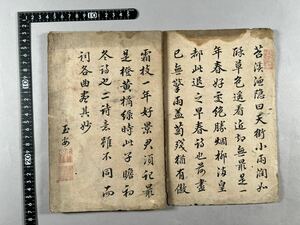 苕溪漁隱曰天街小雨潤如
酥草色遥看近却無最是一
年春好處絶勝烟柳滿皇
都此退之早春詩也荷盡
已無擎雨盖菊殘猶有傲
霜枝一年好景君須記最
是橙黄橘綠時此子瞻初
冬詩也二詩意雖不同而
詞各曲盡其妙